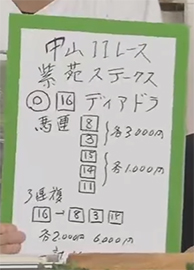 中山11レース
紫苑ステークス
◎ 16 ディアドラ
馬連 8
3 各3,000円
15
14 各1,000円
11
3連複
16→8 3 15
各2,000円 6,000円